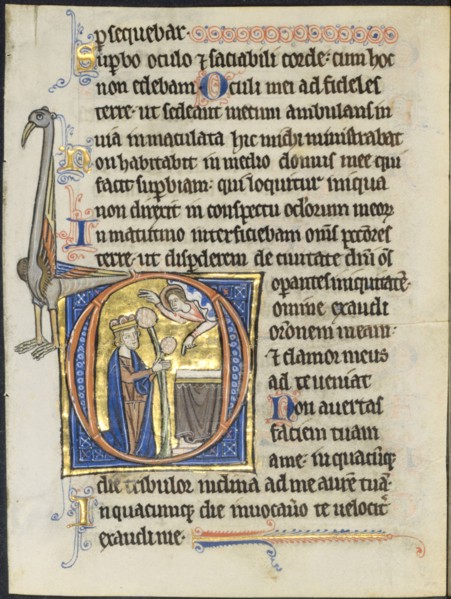 ꝑsequebar.
Suꝑbo oculo ⁊ saciabili corde: cum hoc
non edebam. Oculi mei ad fideles
terre: ut sedeant mecum ambulans in
uia inmaculata hic michi ministrabat
Non habitabit in medio domus mee qui
facit suꝑbiam: qui loquitur iniqua
non direxit in conspectu oclorum meoꝝ
In matutino interficiebam om̄s pctōres
terre: ut disꝑderem de ciuitate dn̄i om̄s
oꝑantes iniquitatē.
Domine exaudi
orōnem meam:
⁊ clamor meus
ad te ueniat
Non auertas
faciem tuam
a me: in quacūqꝫ
die tribulor inclina ad me aurē tuā.
In quacumqꝫ die inuocau̓o te uelocit̓
exaudi me.